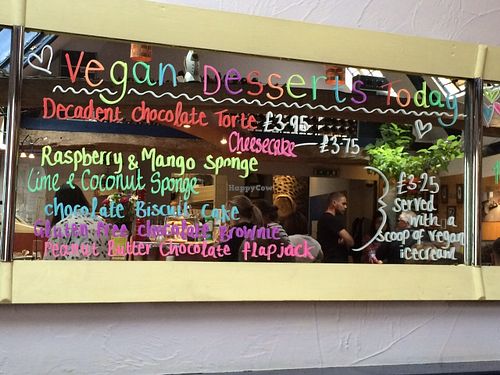 Vegan Desserts Today
Decadent chocolate Torte £3.95
Cheesecake — £3.75
Raspberry & Mango sponge
Lime & Coconut Sponge
chocolate Biscuit Cake
Gluten Free chocolate Brownie
Peanut Butter Chocolate flapjack
£3.25
served
with a
scoop of vegan
icecream
HappyCow